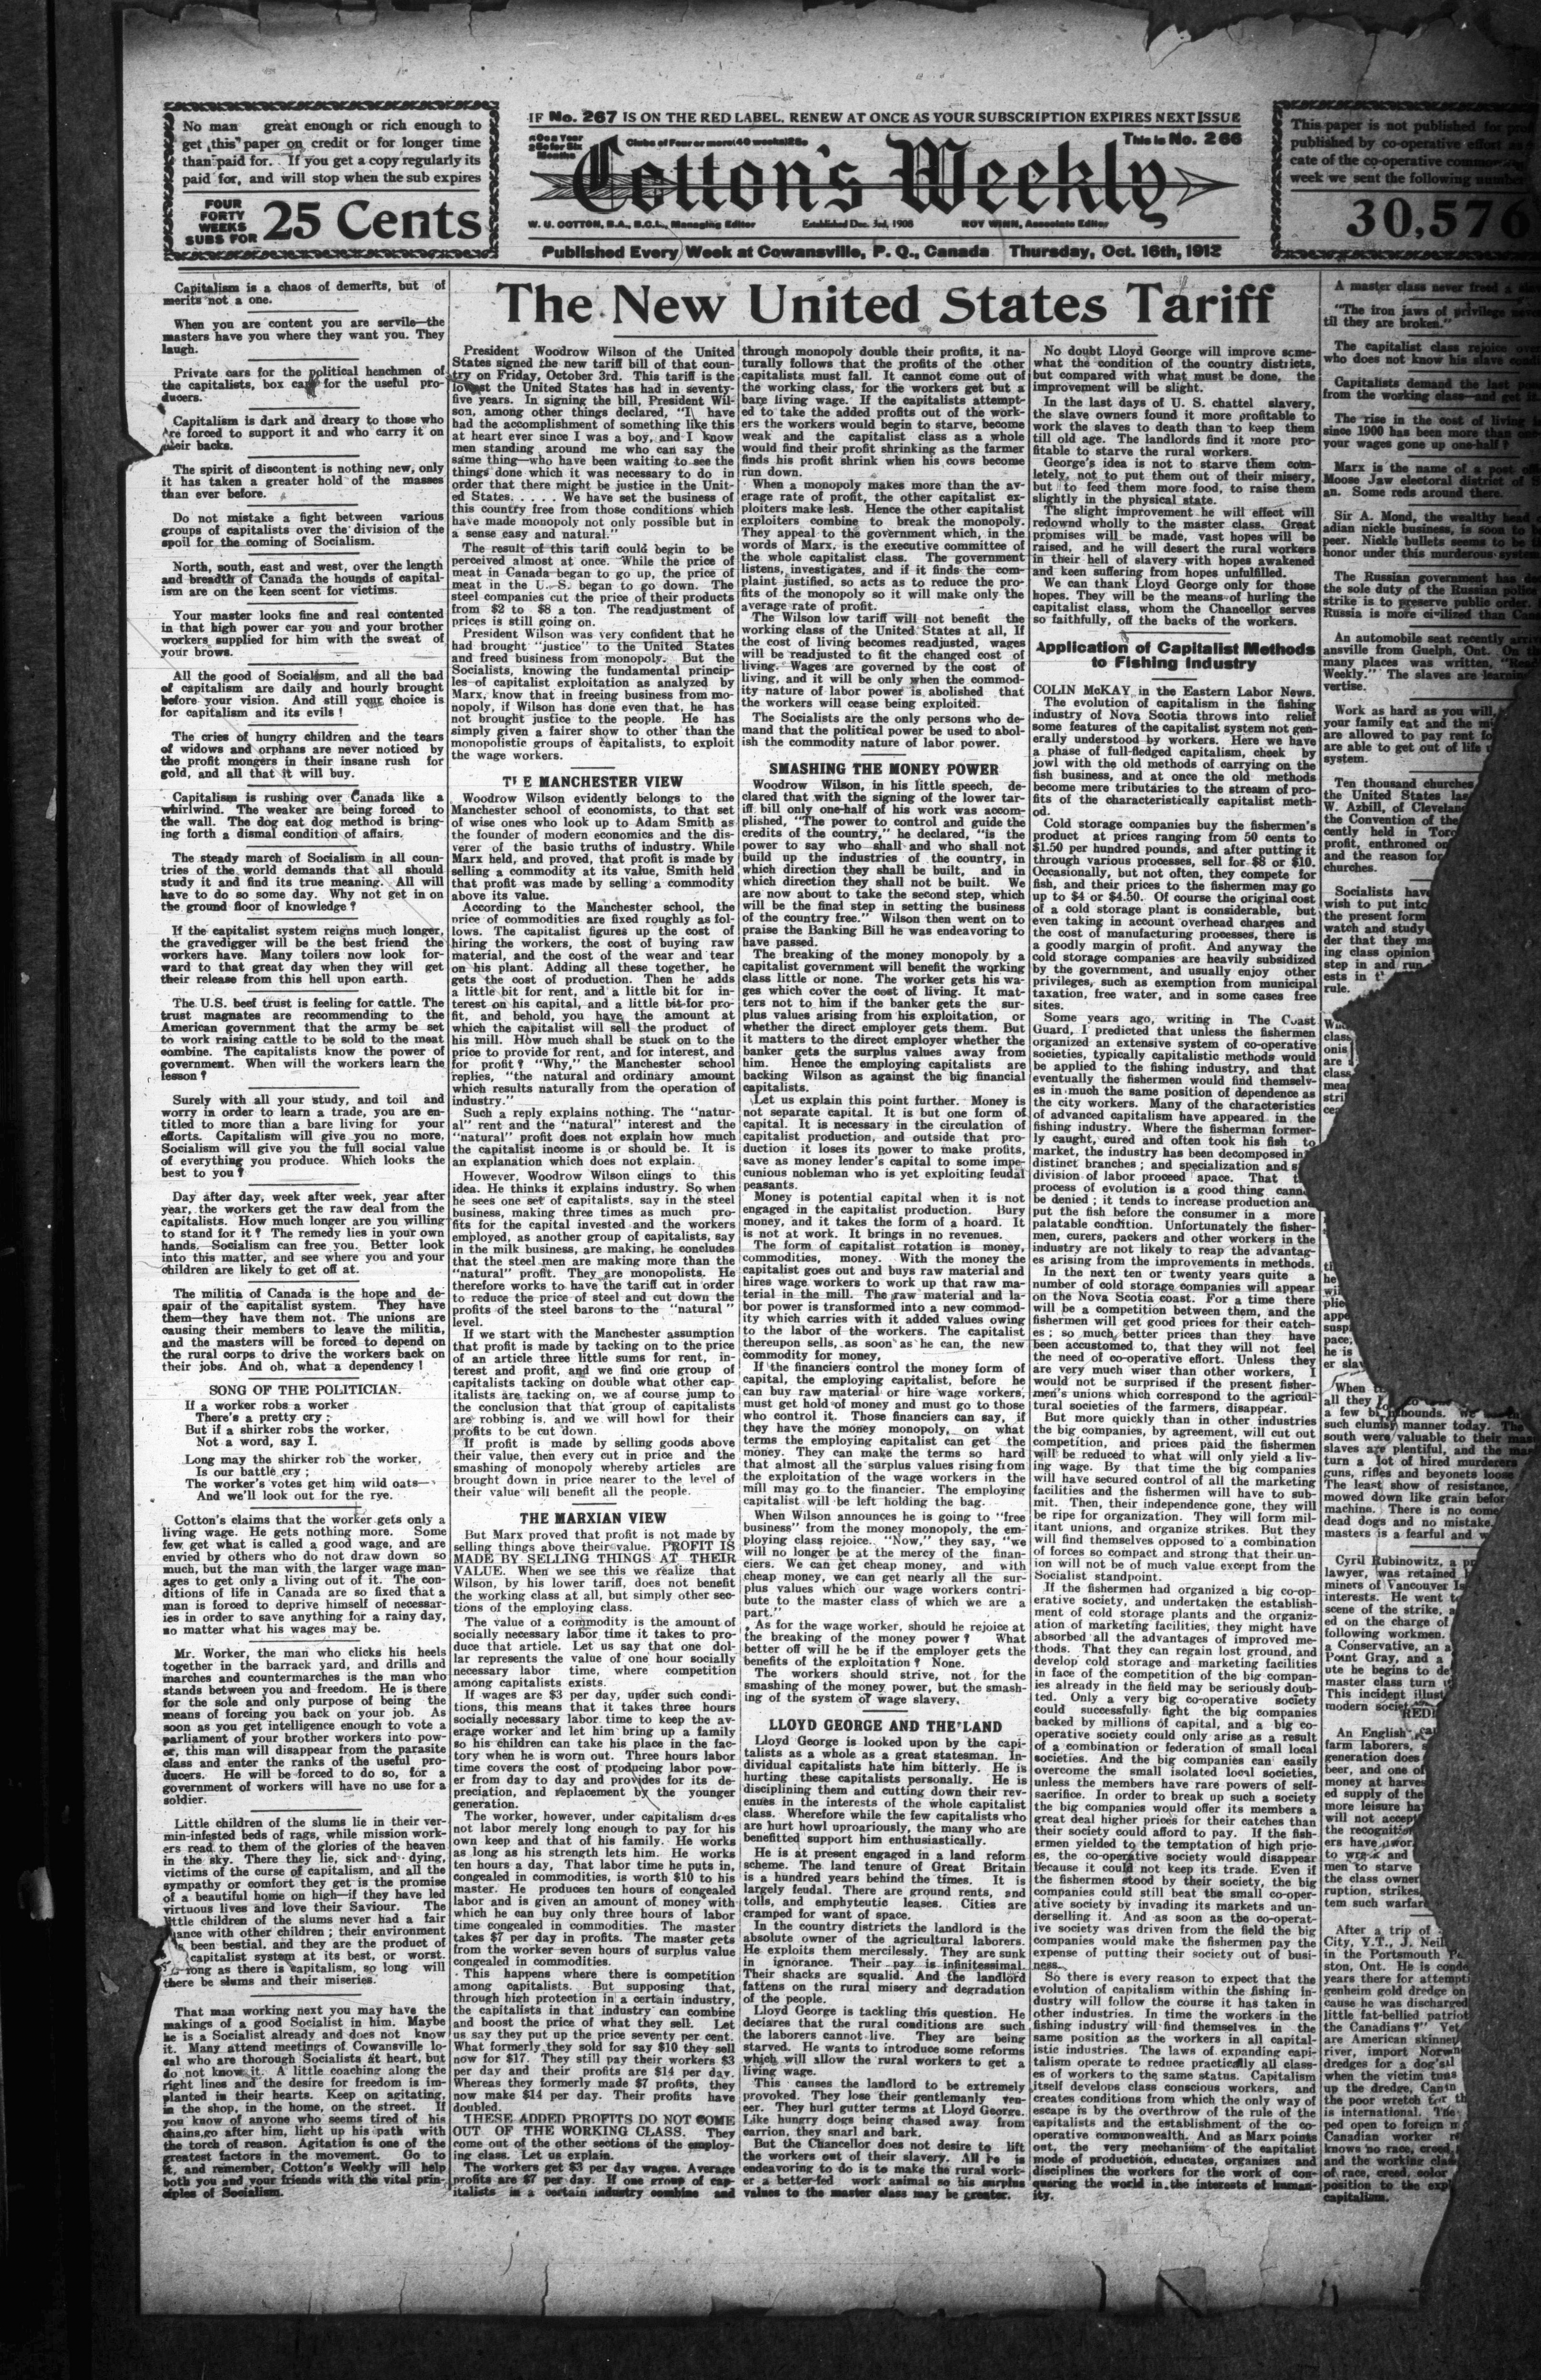 No man great enough or rich enough to
get this paper on credit or for longer time
than paid for. If you get a copy regularly its
paid for, and will stop when the sub expires
FOUR
FORTY
WEEKS
SUBS FOR
25 Cents
IF No. 267 IS ON THE RED LABEL, RENEW AT ONCE AS YOUR SUBSCRIPTION EXPIRES NEXT ISSUE
This is No. 266
Cotton's Weekly
W. U. COTTON, B.A., B.C.L., Managing Editor
Established Dec. 3rd, 1908
ROY WINN, Associate Editor
Published Every Week at Cowansville, P. Q., Canada Thursday, Oct. 16th, 1912
This paper is not published for
published by co-operative effort
cate of the co-operative
week we sent the following number
30,576
Capitalism is a chaos of demerits, but of
merits not a one.
When you are content you are servile—the
masters have you where they want you. They
laugh.
Private cars for the political henchmen of
the capitalists, box cars for the useful pro-
ducers.
Capitalism is dark and dreary to those who
are forced to support it and who carry it on
their backs.
The spirit of discontent is nothing new, only
it has taken a greater hold of the masses
than ever before.
Do not mistake a fight between various
groups of capitalists over the division of the
spoil for the coming of Socialism.
North, south, east and west, over the length
and breadth of Canada the hounds of capital-
ism are on the keen scent for victims.
Your master looks fine and real contented
in that high power car you and your brother
workers supplied for him with the sweat of
your brows.
All the good of Socialism, and all the bad
of capitalism are daily and hourly brought
before your vision. And still your choice is
for capitalism and its evils !
The cries of hungry children and the tears
of widows and orphans are never noticed by
the profit mongers in their insane rush for
gold, and all that it will buy.
Capitalism is rushing over Canada like a
whirlwind. The weaker are being forced to
the wall. The dog eat dog method is bring-
ing forth a dismal condition of affairs.
The steady march of Socialism in all coun-
tries of the world demands that all should
study it and find its true meaning. All will
have to do so some day. Why not get in on
the ground floor of knowledge ?
If the capitalist system reigns much longer,
the gravedigger will be the best friend the
workers have. Many toilers now look for-
ward to that great day when they will get
their release from this hell upon earth.
The U.S. beef trust is feeling for cattle. The
trust magnates are recommending to the
American government that the army be set
to work raising cattle to be sold to the meat
combine. The capitalists know the power of
government. When will the workers learn the
lesson ?
Surely with all your study, and toil and
worry in order to learn a trade, you are en-
titled to more than a bare living for your
efforts. Capitalism will give you no more,
Socialism will give you the full social value
of everything you produce. Which looks the
best to you ?
Day after day, week after week, year after
year, the workers get the raw deal from the
capitalists. How much longer are you willing
to stand for it ? The remedy lies in your own
hands. Socialism can free you. Better look
into this matter, and see where you and your
children are likely to get off at.
The militia of Canada is the hope and de-
spair of the capitalist system. They have
them—they have them not. The unions are
causing their members to leave the militia,
and the masters will be forced to depend on
the rural corps to drive the workers back on
their jobs. And oh, what a dependency !
SONG OF THE POLITICIAN.
If a worker robs a worker
There's a pretty cry ;
But if a shirker robs the worker,
Not a word, say I.
Long may the shirker rob the worker,
Is our battle cry ;
The worker's votes get him wild oats—
And we'll look out for the rye.
Cotton's claims that the worker gets only a
living wage. He gets nothing more. Some
few get what is called a good wage, and are
envied by others who do not draw down so
much, but the man with the larger wage man-
ages to get only a living out of it. The con-
ditions of life in Canada are so fixed that a
man is forced to deprive himself of necessar-
ies in order to save anything for a rainy day,
no matter what his wages may be.
Mr. Worker, the man who clicks his heels
together in the barrack yard, and drills and
marches and countermarches is the man who
stands between you and freedom. He is there
for the sole and only purpose of being the
means of forcing you back on your job. As
soon as you get intelligence enough to vote a
parliament of your brother workers into pow-
er, this man will disappear from the parasite
class and enter the ranks of the useful pro-
ducers. He will be forced to do so, for a
government of workers will have no use for a
soldier.
Little children of the slums lie in their ver-
min-infested beds of rags, while mission work-
ers read to them of the glories of the heaven
in the sky. There they lie, sick and dying,
victims of the curse of capitalism, and all the
sympathy or comfort they get is the promise
of a beautiful home on high—if they have led
virtuous lives and love their Saviour. The
little children of the slums never had a fair
chance with other children ; their environment
been bestial, and they are the product of
capitalist system at its best, or worst.
long as there is capitalism, so long will
there be slums and their miseries.
That man working next you may have the
makings of a good Socialist in him. Maybe
he is a Socialist already and does not know
it. Many attend meetings of Cowansville lo-
cal who are thorough Socialists at heart, but
do not know it. A little coaching along the
right lines and the desire for freedom is im-
planted in their hearts. Keep on agitating,
in the shop, in the home, on the street. If
you know of anyone who seems tired of his
chains, go after him, light up his path with
the torch of reason. Agitation is one of the
greatest factors in the movement. Go to
it, and remember, Cotton's Weekly will help
both you and your friends with the vital prin-
ciples of Socialism.
The New United States Tariff
President Woodrow Wilson of the United
States signed the new tariff bill of that coun-
try on Friday, October 3rd. This tariff is the
lowest the United States has had in seventy-
five years. In signing the bill, President Wil-
son, among other things declared, "I have
had the accomplishment of something like this
at heart ever since I was a boy, and I know
men standing around me who can say the
same thing—who have been waiting to see the
things done which it was necessary to do in
order that there might be justice in the Unit-
ed States. . . . . We have set the business of
this country free from those conditions which
have made monopoly not only possible but in
a sense easy and natural."
The result of this tariff could begin to be
perceived almost at once. While the price of
meat in Canada began to go up, the price of
meat in the U. S. began to go down. The
steel companies cut the price of their products
from $2 to $8 a ton. The readjustment of
prices is still going on.
President Wilson was very confident that he
had brought "justice" to the United States
and freed business from monopoly. But the
Socialists, knowing the fundamental princip-
les of capitalist exploitation as analyzed by
Marx, know that in freeing business from mo-
nopoly, if Wilson has done even that, he has
not brought justice to the people. He has
simply given a fairer show to other than the
monopolistic groups of capitalists, to exploit
the wage workers.
THE MANCHESTER VIEW
Woodrow Wilson evidently belongs to the
Manchester school of economists, to that set
of wise ones who look up to Adam Smith as
the founder of modern economics and the dis-
verer of the basic truths of industry. While
Marx held, and proved, that profit is made by
selling a commodity at its value, Smith held
that profit was made by selling a commodity
above its value.
According to the Manchester school, the
price of commodities are fixed roughly as fol-
lows. The capitalist figures up the cost of
hiring the workers, the cost of buying raw
material, and the cost of the wear and tear
on his plant. Adding all these together, he
gets the cost of production. Then he adds
a little bit for rent, and a little bit for in-
terest on his capital, and a little bit for pro-
fit, and behold, you have the amount at
which the capitalist will sell the product of
his mill. How much shall be stuck on to the
price to provide for rent, and for interest, and
for profit ? "Why," the Manchester school
replies, "the natural and ordinary amount
which results naturally from the operation of
industry."
Such a reply explains nothing. The "natur-
al" rent and the "natural" interest and the
"natural" profit does not explain how much
the capitalist income is or should be. It is
an explanation which does not explain.
However, Woodrow Wilson clings to this
idea. He thinks it explains industry. So when
he sees one set of capitalists, say in the steel
business, making three times as much pro-
fits for the capital invested and the workers
employed, as another group of capitalists, say
in the milk business, are making, he concludes
that the steel men are making more than the
"natural" profit. They are monopolists. He
therefore works to have the tariff cut in order
to reduce the price of steel and cut down the
profits of the steel barons to the "natural"
level.
If we start with the Manchester assumption
that profit is made by tacking on to the price
of an article three little sums for rent, in-
terest and profit, and we find one group of
capitalists tacking on double what other cap-
italists are tacking on, we af course jump to
the conclusion that that group of capitalists
are robbing is, and we will howl for their
profits to be cut down.
If profit is made by selling goods above
their value, then every cut in price and the
smashing of monopoly whereby articles are
brought down in price nearer to the level of
their value will benefit all the people.
THE MARXIAN VIEW
But Marx proved that profit is not made by
selling things above their value. PROFIT IS
MADE BY SELLING THINGS AT THEIR
VALUE. When we see this we realize that
Wilson, by his lower tariff, does not benefit
the working class at all, but simply other sec-
tions of the employing class.
The value of a commodity is the amount of
socially necessary labor time it takes to pro-
duce that article. Let us say that one dol-
lar represents the value of one hour socially
necessary labor time, where competition
among capitalists exists.
If wages are $3 per day, under such condi-
tions, this means that it takes three hours
socially necessary labor time to keep the av-
erage worker and let him bring up a family
so his children can take his place in the fac-
tory when he is worn out. Three hours labor
time covers the cost of producing labor pow-
er from day to day and provides for its de-
preciation, and replacement by the younger
generation.
The worker, however, under capitalism does
not labor merely long enough to pay for his
own keep and that of his family. He works
as long as his strength lets him. He works
ten hours a day, That labor time he puts in,
congealed in commodities, is worth $10 to his
master. He produces ten hours of congealed
labor and is given an amount of money with
which he can buy only three hours of labor
time congealed in commodities. The master
takes $7 per day in profits. The master gets
from the worker seven hours of surplus value
congealed in commodities.
This happens where there is competition
among capitalists. But supposing that,
through high protection in a certain industry,
the capitalists in that industry can combine
and boost the price of what they sell. Let
us say they put up the price seventy per cent.
What formerly they sold for say $10 they sell
now for $17. They still pay their workers $3
per day and their profits are $14 per day.
Whereas they formerly made $7 profits, they
now make $14 per day. Their profits have
doubled.
THESE ADDED PROFITS DO NOT COME
OUT OF THE WORKING CLASS. They
come out of the other sections of the employ-
ing class. Let us explain.
The workers get $3 per day wages. Average
profits are $7 per day. If one group of cap-
italists in a certain industry combine and
through monopoly double their profits, it na-
turally follows that the profits of the other
capitalists must fall. It cannot come out of
the working class, for the workers get but a
bare living wage. If the capitalists attempt-
ed to take the added profits out of the work-
ers the workers would begin to starve, become
weak and the capitalist class as a whole
would find their profit shrinking as the farmer
finds his profit shrink when his cows become
run down.
When a monopoly makes more than the av-
erage rate of profit, the other capitalist ex-
ploiters make less. Hence the other capitalist
exploiters combine to break the monopoly.
They appeal to the government which, in the
words of Marx, is the executive committee of
the whole capitalist class. The government
listens, investigates, and if it finds the com-
plaint justified, so acts as to reduce the pro-
fits of the monopoly so it will make only the
average rate of profit.
The Wilson low tariff will not benefit the
working class of the United States at all, If
the cost of living becomes readjusted, wages
will be readjusted to fit the changed cost of
living. Wages are governed by the cost of
living, and it will be only when the commod-
ity nature of labor power is abolished that
the workers will cease being exploited.
The Socialists are the only persons who de-
mand that the political power be used to abol-
ish the commodity nature of labor power.
SMASHING THE MONEY POWER
Woodrow Wilson, in his little speech, de-
clared that with the signing of the lower tar-
iff bill only one-half of his work was accom-
plished, "The power to control and guide the
credits of the country," he declared, "is the
power to say who shall and who shall not
build up the industries of the country, in
which direction they shall be built, and in
which direction they shall not be built. We
are now about to take the second step, which
will be the final step in setting the business
of the country free." Wilson then went on to
praise the Banking Bill he was endeavoring to
have passed.
The breaking of the money monopoly by a
capitalist government will benefit the working
class little or none. The worker gets his wa-
ges which cover the cost of living. It mat-
ters not to him if the banker gets the sur-
plus values arising from his exploitation, or
whether the direct employer gets them. But
it matters to the direct employer whether the
banker gets the surplus values away from
him. Hence the employing capitalists are
backing Wilson as against the big financial
capitalists.
Let us explain this point further. Money is
not separate capital. It is but one form of
capital. It is necessary in the circulation of
capitalist production, and outside that pro-
duction it loses its power to make profits,
save as money lender's capital to some impe-
cunious nobleman who is yet exploiting feudal
peasants.
Money is potential capital when it is not
engaged in the capital production. Bury
money, and it takes the form of a hoard. It
is not at work. It brings in no revenues.
The form of capitalist rotation is money,
commodities, money. With the money the
capitalist goes out and buys raw material and
hires wage workers to work up that raw ma-
terial in the mill. The raw material and la-
bor power is transformed into a new commod-
ity which carries with it added values owing
to the labor of the workers. The capitalist
thereupon sells, as soon as he can, the new
commodity for money,
If the financiers control the money form of
capital, the employing capitalist, before he
can buy raw material or hire wage workers,
must get hold of money and must go to those
who control it. Those financiers can say, if
they have the money monopoly, on what
terms the employing capitalist can get the
money. They can make the terms so hard
that almost all the surplus values rising from
the exploitation of the wage workers in the
mill may go to the financier. The employing
capitalist will be left holding the bag.
When Wilson announces he is going to "free
business" from the money monopoly, the em-
ploying class rejoice. "Now," they say, "we
will no longer be at the mercy of the finan-
ciers. We can get cheap money, and with
cheap money, we can get nearly all the sur-
plus values which our wage workers contri-
bute to the master class of which we are a
part."
As for the wage worker, should he rejoice at
the breaking of the money power ? What
better off will he be if the employer gets the
benefits of the exploitation ? None.
The workers should strive, not for the
smashing of the money power, but the smash-
ing of the system of wage slavery.
LLOYD GEORGE AND THE LAND
Lloyd George is looked upon by the capi-
talists as a whole as a great statesman. In-
dividual capitalists hate him bitterly. He is
hurting these capitalists personally. He is
disciplining them and cutting down their rev-
enues in the interests of the whole capitalist
class. Wherefore while the few capitalists who
are hurt howl uproariously, the many who are
benefitted support him enthusiastically.
He is at present engaged in a land reform
scheme. The land tenure of Great Britain
is a hundred years behind the times. It is
largely feudal. There are ground rents, and
tolls, and emphyteutic leases. Cities are
cramped for want of space.
In the country districts the landlord is the
absolute owner of the agricultural laborers.
He exploits them mercilessly. They are sunk
in ignorance. Their pay is infinitessimal.
Their shacks are squalid. And the landlord
fattens on the rural misery and degradation
of the people.
Lloyd George is tackling this question. He
declares that the rural conditions are such
the laborers cannot live. They are being
starved. He wants to introduce some reforms
which will allow the rural workers to get a
living wage.
This causes the landlord to be extremely
provoked. They lose their gentlemanly ven-
eer. They hurl gutter terms at Lloyd George.
Like hungry dogs being chased away from
carrion, they snarl and bark.
But the Chancellor does not desire to lift
the workers out of their slavery. All he is
endeavoring to do is to make the rural work-
er a better-fed work animal so his surplus
values to the master class may be greater.
No doubt Lloyd George will improve some-
what the condition of the country districts,
but compared with what must be done, the
improvement will be slight.
In the last days of U. S. chattel slavery,
the slave owners found it more profitable to
work the slaves to death than to keep them
till old age. The landlords find it more pro-
fitable to starve the rural workers.
George's idea is not to starve them com-
letely, not to put them out of their misery,
but to feed them more food, to raise them
slightly in the physical state.
The slight improvement he will effect will
redownd wholly to the master class. Great
promises will be made, vast hopes will be
raised, and he will desert the rural workers
in their hell of slavery with hopes awakened
and keen suffering from hopes unfulfilled.
We can thank Lloyd George only for those
hopes. They will be the means of hurling the
capitalist class, whom the Chancellor serves
so faithfully, off the backs of the workers.
Application of Capitalist Methods
to Fishing Industry
COLIN McKAY in the Eastern Labor News.
The evolution of capitalism in the fishing
industry of Nova Scotia throws into relief
some features of the capitalist system not gen-
erally understood by workers. Here we have
a phase of full-fledged capitalism, cheek by
jowl with the old methods of carrying on the
fish business, and at once the old methods
become mere tributaries to the stream of pro-
fits of the characteristically capitalist meth-
od.
Cold storage companies buy the fishermen's
product at prices ranging from 50 cents to
$1.50 per hundred pounds, and after putting it
through various processes, sell for $8 or $10.
Occasionally, but not often, they compete for
fish, and their prices to the fishermen may go
up to $4 or $4.50. Of course the original cost
of a cold storage plant is considerable, but
even taking in account overhead charges and
the cost of manufacturing processes, there is
a goodly margin of profit. And anyway the
cold storage companies are heavily subsidized
by the government, and usually enjoy other
privileges, such as exemption from municipal
taxation, free water, and in some cases free
sites.
Some years ago, writing in The Coast
Guard, I predicted that unless the fishermen
organized an extensive system of co-operative
societies, typically capitalistic methods would
be applied to the fishing industry, and that
eventually the fishermen would find themselv-
es in much the same position of dependence as
the city workers. Many of the characteristics
of advanced capitalism have appeared in the
fishing industry. Where the fisherman former-
ly caught, cured and often took his fish to
market, the industry has been decomposed in
distinct branches ; and specialization and
division of labor proceed apace. That
process of evolution is a good thing
be denied ; it tends to increase production and
put the fish before the consumer in a more
palatable condition. Unfortunately the fisher-
men, curers, packers and other workers in the
industry are not likely to reap the advantag-
es arising from the improvements in methods.
In the next ten or twenty years quite a
number of cold storage companies will appear
on the Nova Scotia coast. For a time there
will be a competition between them, and the
fishermen will get good prices for their catch-
es ; so much better prices than they have
been accustomed to, that they will not feel
the need of co-operative effort. Unless they
are very much wiser than other workers, I
would not be surprised if the present fisher-
men's unions which correspond to the agricul-
tural societies of the farmers, disappear.
But more quickly than in other industries
the big companies, by agreement, will cut out
competition, and prices paid the fishermen
will be reduced to what will only yield a liv-
ing wage. By that time the big companies
will have secured control of all the marketing
facilities and the fishermen will have to sub-
mit. Then, their independence gone, they will
be ripe for organization. They will form mil-
itant unions, and organize strikes. But they
will find themselves opposed to a combination
of forces so compact and strong that their un-
ion will not be of much value except from the
Socialist standpoint.
If the fishermen had organized a big co-op-
erative society, and undertaken the establish-
ment of cold storage plants and the organiz-
ation of marketing facilities, they might have
absorbed all the advantages of improved me-
thods. That they can regain lost ground, and
develop cold storage and marketing facilities
in face of the competition of the big compan-
ies already in the field may be seriously doub-
ted. Only a very big co-operative society
could successfully fight the big companies
backed by millions of capital, and a big co-
operative society could only arise as a result
of a combination or federation of small local
societies. And the big companies can easily
overcome the small isolated local societies,
unless the members have rare powers of self-
sacrifice. In order to break up such a society
the big companies would offer its members a
great deal higher prices for their catches than
their society could afford to pay. If the fish-
ermen yielded to the temptation of high pric-
es, the co-operative society would disappear
because it could not keep its trade. Even if
the fishermen stood by their society, the big
companies could still beat the small co-oper-
ative society by invading its markets and un-
derselling it. And as soon as the co-operat-
ive society was driven from the field the big
companies would make the fishermen pay the
expense of putting their society out of busi-
ness.
So there is every reason to expect that the
evolution of capitalism within the fishing in-
dustry will follow the course it has taken in
other industries. In time the workers in the
fishing industry will find themselves in the
same position as the workers in all capital-
istic industries. The laws of expanding capi-
talism operate to reduce practically all class-
es of workers to the same status. Capitalism
itself develops class conscious workers, and
creates conditions from which the only way of
escape is by the overthrow of the rule of the
capitalists and the establishment of the co-
operative commonwealth. And as Marx points
out, the very mechanism of the capitalist
mode of production, educates, organizes and
disciplines the workers for the work of con-
quering the world in the interests of human-
ity.
A master class never freed a
"The iron jaws of privilege
til they are broken."
The capitalist class rejoice
who does not know his slave
Capitalists demand the last
from the working class—and get
The rise in the cost of living
since 1900 has been more than
your wages gone up one-half ?
Marx is the name of a post
Moose Jaw electoral district of
an. Some reds around there.
Sir A. Mond, the wealthy head
adian nickle business, is soon to
peer. Nickle bullets seems to be
honor under this murderous system
The Russian government has
the sole duty of the Russian police
strike is to preserve public order.
Russia is more civilized than
An automobile seat recently
ansville from Guelph, Ont. On
many places was written, "Read
Weekly." The slaves are learning
vertise.
Work as hard as you will,
your family eat and the
are allowed to pay rent
are able to get out of life
system.
Ten thousand churches
the United States
W. Azbill, of Cleveland
the Convention of the
cently held in
profit, enthroned
and the reason for
churches.
Socialists have
wish to put into
the present form
watch and study
der that they
ing class opinion
step in and run
ests in
rule.
class
onis
are
class
When
all they
a few
such clumsy manner today. The
south were valuable to their
slaves are plentiful, and the
turn a lot of hired murderers
guns, rifles and beyonets loose
The least show of resistance,
mowed down like grain before
machine. There is no
dead dogs and no mistake.
masters is a fearful and
Cyril Rubinowitz, a
lawyer, was retained
miners of Vancouver
interests. He went
scene of the strike,
ed on the charge of
following workmen.
a Conservative, an
Point Gray, and a
ute he begins to
master class turn
This incident
modern
An English
farm laborers,
generation does
beer, and one of
money at
ed supply of the
more leisure
will not accept
the recognition
ers have
to wreck and
men to starve
the class owner
ruption, strikes
tem such warfare
After a trip of
City, Y.T., J.
in the Portsmouth
ston, Ont. He is
years there for
genheim gold dredge on
cause he was discharged
little fat-bellied
the Canadians ?" Yet
are American
river, import
dredges for a
when the victim
up the dredge,
the poor wretch for
is international. The
ped open to foreign
Canadian worker
knows no race, creed,
and the working class
of race, creed, color
position to the
capitalism.